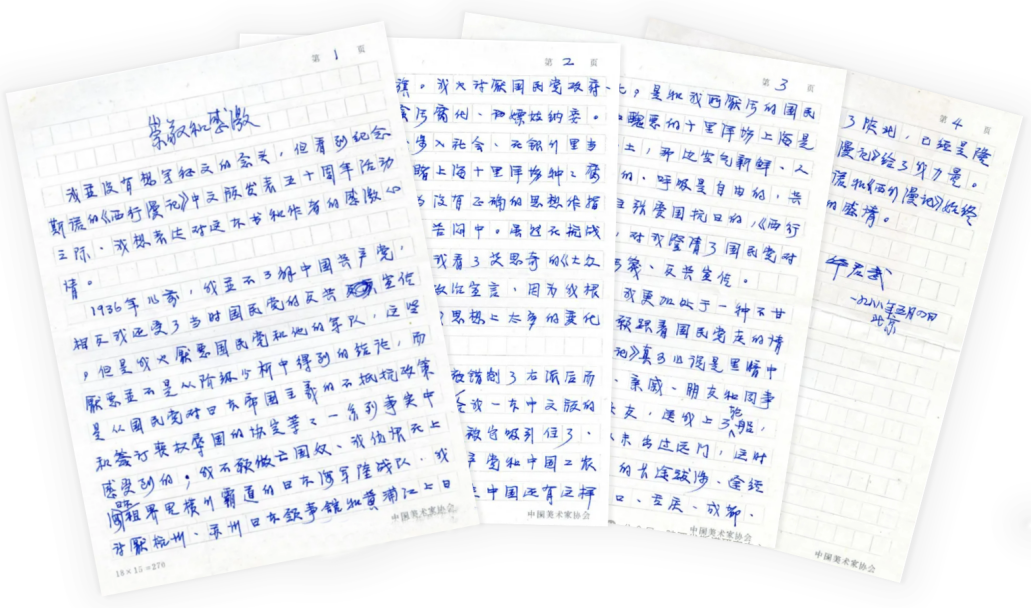 第 1 页
崇敬和感激
我并没有想写和文的念头，但看到纪念
斯诺的《西行漫记》中文版发表五十周年活动
之际、我想表达对这本书和作者的感激心
情。
1936年以前，我并不了解中国共产党，
相反我还受了当时国民党的反共宣传
，但是我大厌恶国民党和他的军队，这些
厌恶并不是从阶级分析中得到的结论，而
是从国民党对日本帝国主义的不抵抗政策
和签订丧权辱国的协定等了一系列事实中
感受到的。我不愿做亡国奴、我仇恨在上
海租界里横行霸道的日本海军陆战队、我
讨厌杭州、苏州日本领事馆和黄浦江上日
18×15=270
中国美术家协会
第 2 页
旗。我大讨厌国民党政府
贪污腐化、
步入社会、在银行里当
睹上海十里洋场种种腐
没有正确的思想作指
苦闷中。虽然在抗战
我看了艾思奇的《大众
政治宣言，因为我根
思想上太多的变化
被错划了右派后而
给我一本中文版的
被它吸引住了、
产党和中国工农
中国还有这样
中国美术家协会
第 3 页
，是和我西厌污的国民
丑恶的十里洋场上海是
土，那边空气新鲜、人
的、呼吸是自由的，共
主张爱国抗日的，《西行
，对我澄清了国民党对
污蔑、反共宣传。
我更加处于一种不甘
愿跟着国民党走的情
记》真可以说是黑暗中
、亲戚、朋友和同事
女友，送我上了她船，
从未出过远门，这时
的长途跋涉、途经
口、重庆、成都、
中国美术家协会
第 4 页
了陕北，已经是隆
漫记》给了我力量。
诺和《西行漫记》始终
的感情。
华君武
一九八八年三月四日
北京
中国美术家协会